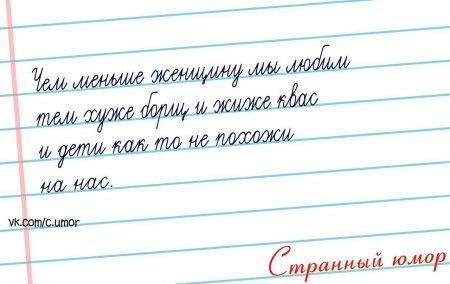 Чем меньше женщину мы любим
тем хуже борщ и жиже квас
и дети как то не похожи
на нас.
vk.com/c.umor
Странный юмор